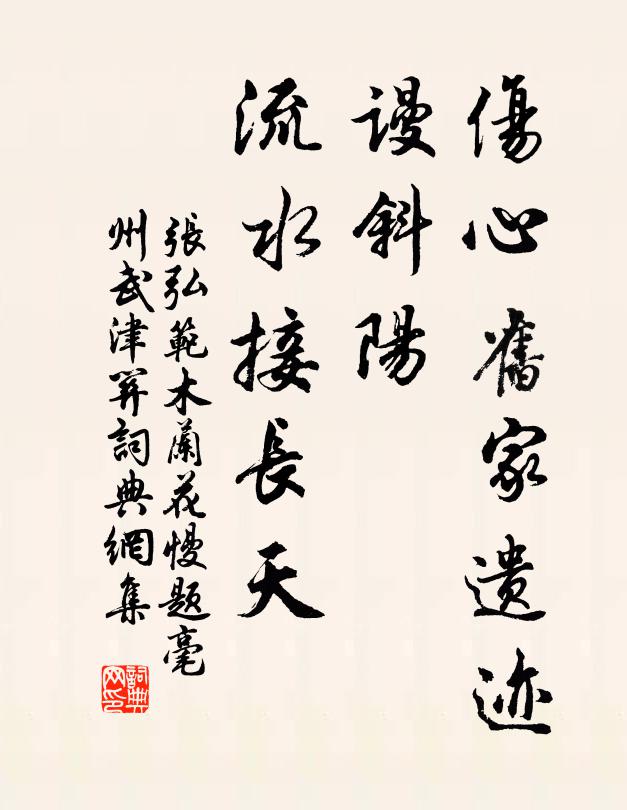 傷心舊家遺迹
謾斜陽
流水接長天
張弘範木蘭花慢題亳
州武津關詞典網集
詞典
网印